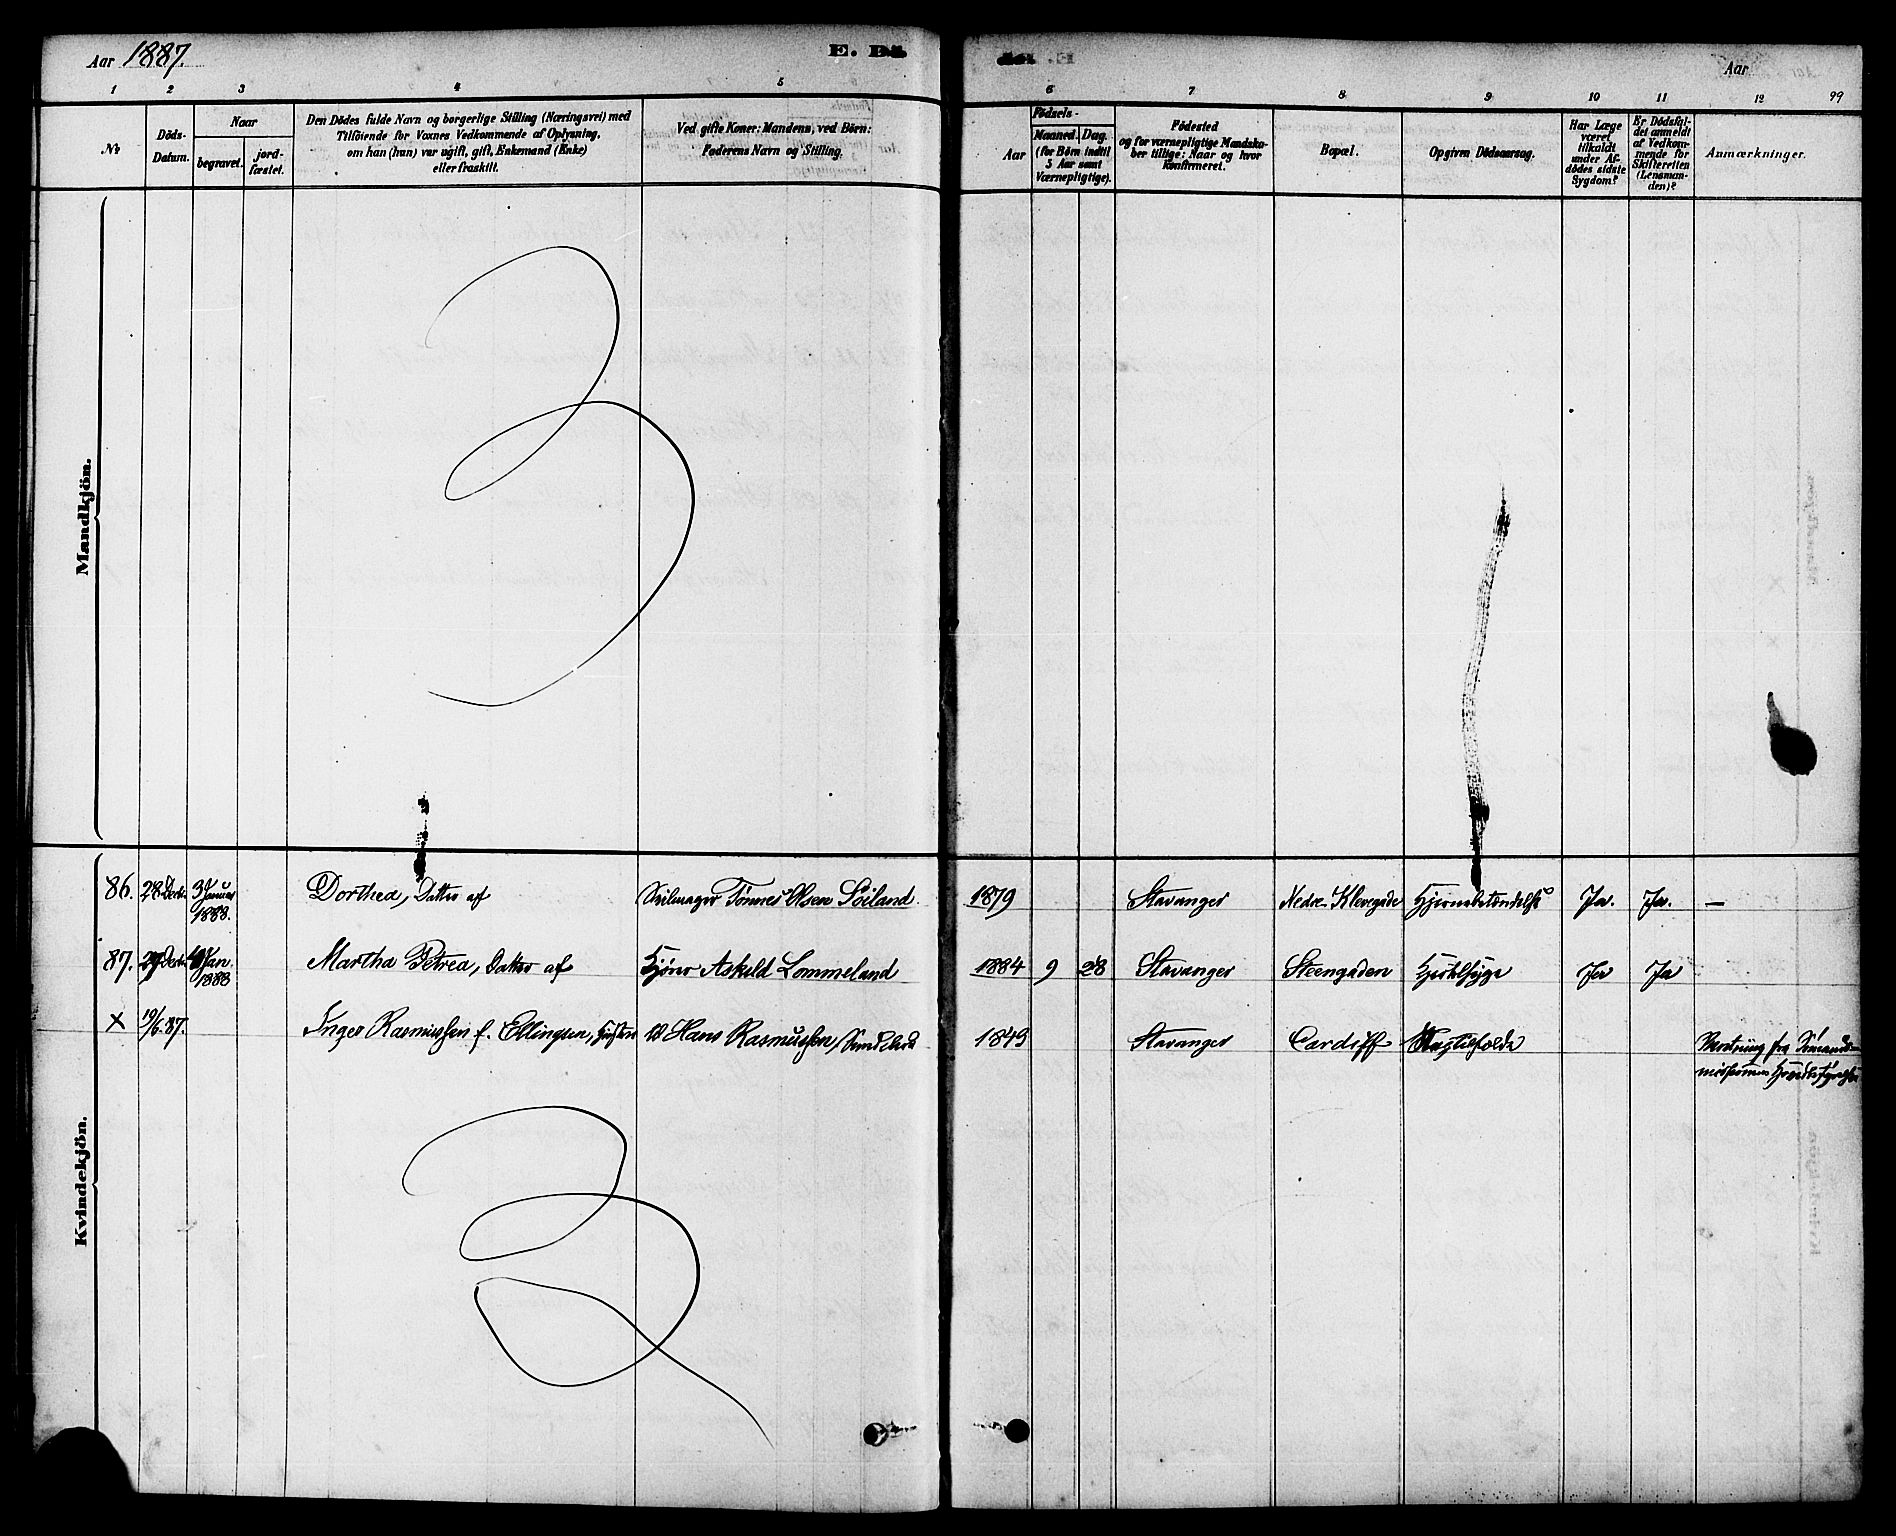 Aar 1887.
E. Dö
Aar
1 2 3 4 5
6 7 8 9 10 11 12 99
No
Döds-Datum.
Naar
begravet.
jord-fæstet.
Den Dödes fulde Navn og borgerlige Stilling (Næringsvei) med
Tilföiende for Voxnes Vedkommende af Oplysning,
om han (hun) var ugift, gift, Enkemand (Enke)
eller fraskilt.
Ved gifte Koner: Mandens, ved Börn:
Faderens Navn og Stilling.
Födsels-
Aar
Maaned. Dag.
(for Börn indtil
5 Aar samt
Værnepligtige).
Födested
og for værnepligtige Mandska-
ber tillige: Naar og hvor
konfirmeret.
Bopæl.
Opgiven Dödsaarsag.
Har Læge
været
tilkaldt
under Af-
dödes sidste
Sygdom?
Er Dödsfal-
det anmeldt
af Vedkom-
mende for
Skifteretten
(Lensman-
den)?
Anmærkninger.
Mandkjön.
Kvindekjön.
86. 28 Decbr. 3 Januar 1888. Dorthea, Datter af Seilmager Tönnes Olsen Soiland 1879 Stavanger Nedre Klevegade Hjernebetændelse Ja. Ja. —
87. 29 Decbr. Jan. 1888 Martha Petrea, Datter af Askild Lommeland 1884 9 28 Stavanger Steengaden Ja Ja
X 19/6.87. Inger Rasmussen f. Ellingsen, Hans Rasmussen, 1849 Stavanger Cardiff fra Sömands-
missionens Hovedbestyrelse